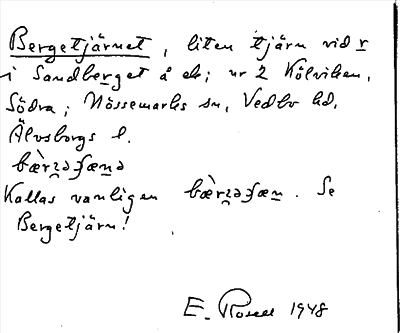 Bergetjärnet, liten tjärn vid r
i Sandberget å ek; nr 2 Kölviken,
Södra; Nössemarks sn, Vedbo hd,
Älvsborgs l.
Kallas vanligen bær̀ʒəʃæn. Se
Bergetjärn!
E. Rosell 1948